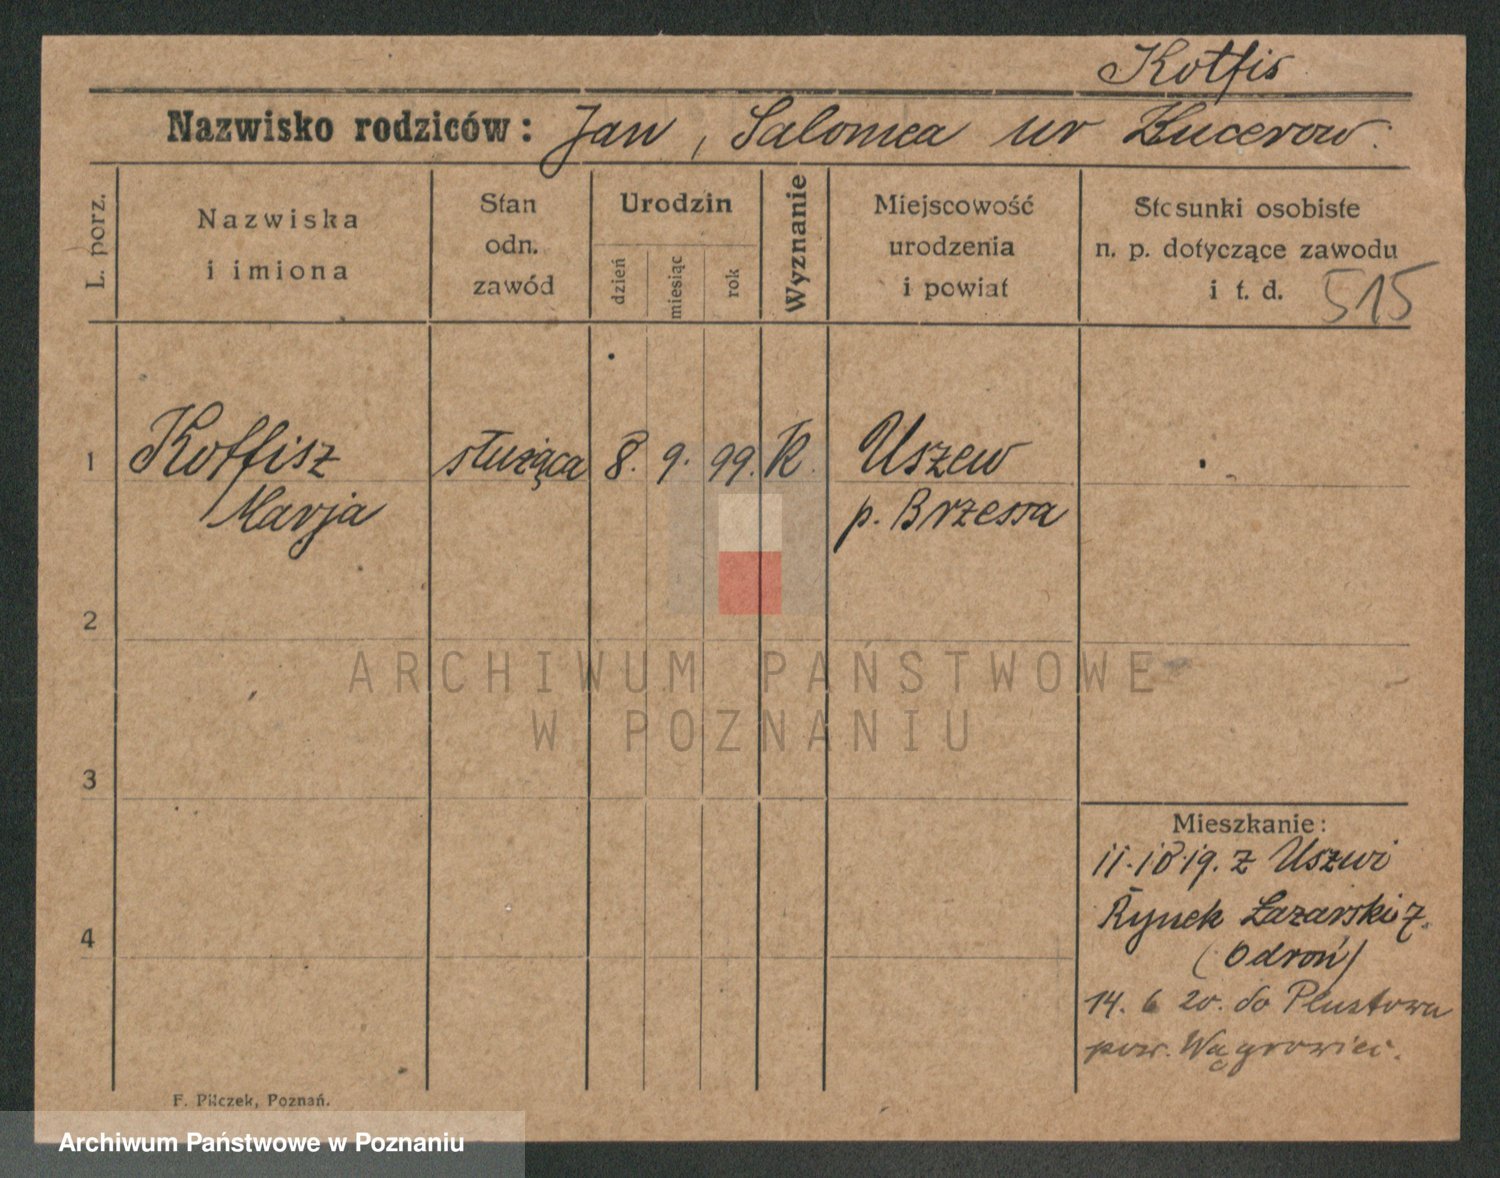 Kotfis
Nazwisko rodziców: Jan, Salomea ur Kucerow.
L. porz.
Nazwiska
i imiona
Stan
odn.
zawód
Urodzin
dzień
miesiąc
rok
Wyznanie
Miejscowość
urodzenia
i powiat
Stosunki osobiste
n. p. dotyczące zawodu
i t. d.
515
1 Kotfisz służąca 8. 9. 99. K. Uszew
Marja p. Brzessa
2
3
4
ARCHIWUM PAŃSTWOWE
W POZNANIU
Mieszkanie:
11.10.19. z Uszwi
Rynek Łazarski 7.
(Odroń)
14. 6 20. do Plustowa
pow. Wągrowiec.
F. Pilczek, Poznań.
Archiwum Państwowe w Poznaniu